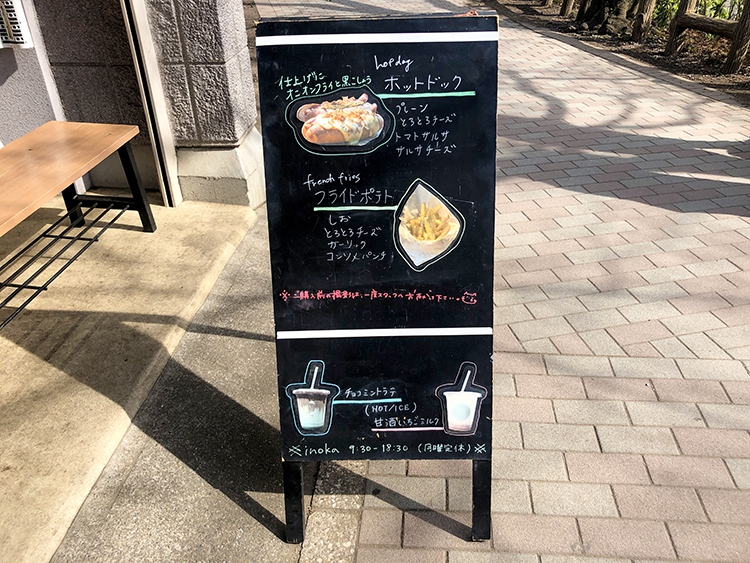 hop dog
仕上げに
オニオンフライと黒こしょう
ホットドック
プレーン
とろとろチーズ
トマトサルサ
サルサチーズ
french fries
フライドポテト
しお
とろとろチーズ
ガーリック
コンソメパンチ
※ご購入前の撮影は、一度スタッフへお声がけ下さい。
チョコミントラテ
(HOT/ICE)
甘酒いちごミルク
※inoka 9:30-18:30 (月曜定休)※